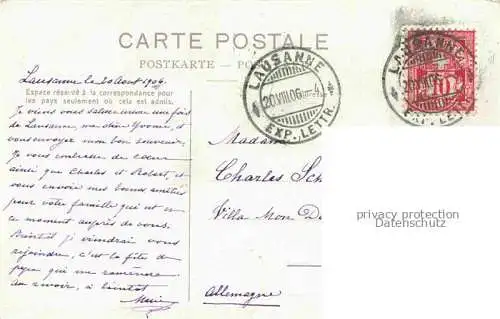 CARTE POSTALE
POSTKARTE - PO
Lausanne le 20 Août 1906.
Espace réservé à la correspondance pour
les pays seulement où cela est admis.
Je viens vous saluer une fois
de Lausanne, ma chère Yvonne, et
vous envoyer mon bon souvenir.
Je vous embrasse de cœur
ainsi que Charles et Robert, et
vous envoie mes bonnes amitiés
pour votre famille qui est en
ce moment auprès de vous.
Bientôt je viendrai vous
rejoindre, c'est la fête de
papa qui me ramènera
Au revoir, à bientôt
LAUSANNE
20 VIII 06 - 4
EXP. LETTR.
LAUSANNE
20 VIII 06
EXP. LETTR.
10
Madame
Charles Sch
Villa Mon De
Allemagne
privacy protection
Datenschutz